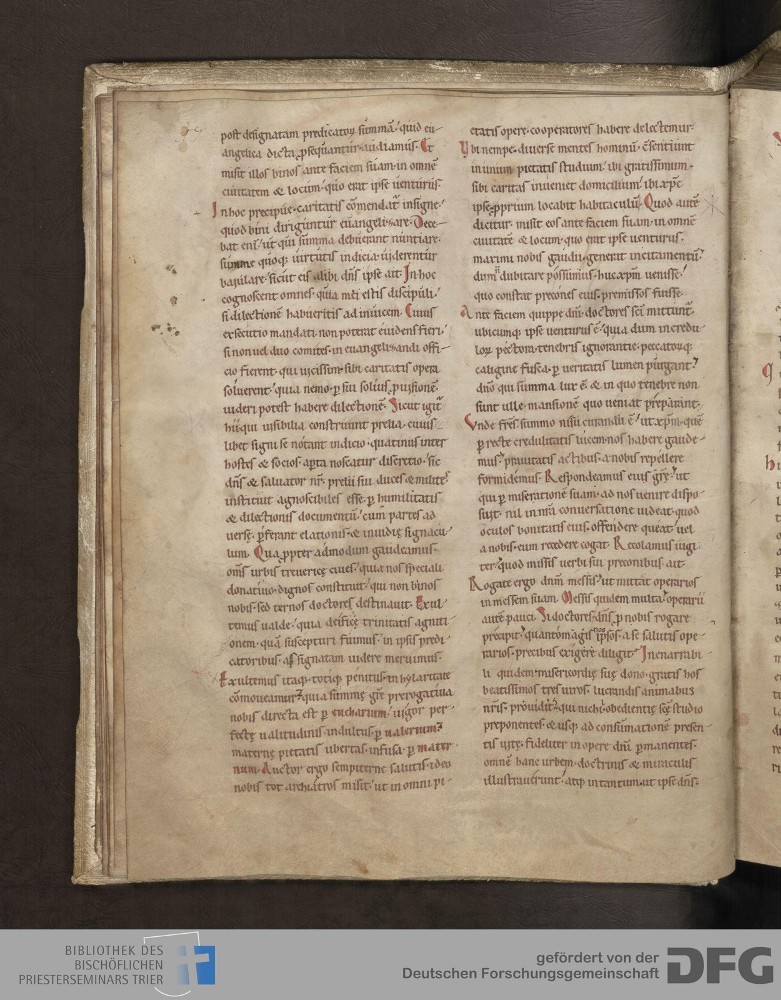 post designatam predicatorꝝ summā. quid eu-
angelica dicta ꝓsequantur. audiamus. Et
misit illos binos ante faciem suam. in omnē
ciuitatem & locum. quo erat ipse uenturus.
In hoc precipue. caritatis cōmendat᷑ insigne.
quod bini diriguntur euangelizare. Dece-
bat eni. ut qui summa debuerant nuntiare.
summe quoq; uirtutis indicia uiderentur
baiulare. sicut eis alibi dn̄s ipse ait. In hoc
cognoscent omnes. quia mei estis discipuli.
si dilectionē habueritis ad inuicem. Cuius
exsecutio mandati non poterat euidens fieri.
si non uel duo comites in euangelizandi offi-
cio fierent. qui uicissim sibi caritatis opera
soluerent. quia nemo ꝑ sui solius
uideri potest habere dilectionē. Sicut igit᷑
hi qui uisibilia construunt prelia. cuius-
libet signi se notant indicio. quatinus inter
hostes & socios. aꝑta noscatur discretio. sic
dn̄s & saluator nr̄. prelii sui duces & milites
instituit agnoscibiles esse. ꝑ humilitatis
& dilectionis documentū. cum partes ad
uerse ꝑferant elationis. & inuidię signacu-
lum. Qua ppter admodum gaudeamus.
om̄s urbis treuericę ciues. quia nos speciali
donatiuo. dignos constituit. qui non binos
nobis. sed ternos doctores destinauit. Exul-
temus ualde. quia deificę trinitatis agniti-
onem. quā suscepturi fuimus. in ipsis predi-
catoribus. assignatam uidere meruimus.
Exultemus itaq; totiq; penitus. in hylaritate
cōmoueamur. quia summę grę prerogatiua
nobis directa est ꝑ eucharium. uigor per-
fectę ualitudinis indultus. ꝑ ualerium.
maternę pietatis ubertas. infusa ꝑ mater
num. Auctor ergo sempiternę salutis. ideo
nobis tot archiatros misit. ut in omni pi-
etatis opere. cooperatores habere delectemur.
Vbi nempe. diuerse mentes hominū. c̄sentiunt
in unum pietatis studium. ibi gratissimum
sibi caritas inueniet domicilium. ibi xp̄c
ipse ꝓprium locabit habitaculū. Quod autē
dicitur. misit eos ante faciem suam. in omnē
ciuitatē & locum. quo erat ipse uenturus.
maximi nobis gaudii. generat incitamentū.
dum dubitare possumus. huc xp̄m uenisse.
quo constat precones eius. premissos fuisse.
Ante faciem quippe dn̄i. doctores sc̄i mittunt᷑
ubicumq; ipse uenturus ē. quia dum incredu-
lorꝝ pectora. tenebris ignorantie. peccatorūq;
caligine fusca. ꝑ ueritatis lumen purgant᷑.
dn̄o qui summa lux ē. & in quo tenebre non
sunt ulle. mansionē quo ueniat preparant.
Vnde frēs summo nisu curandū ē. ut xp̄m quē
ꝑ recte credulitatis lucem. nos habere gaude-
mus. prauitatis actibus. a nobis repellere
formidemus. Respondeamus eius grę. ut
qui ꝑ miserationē suam. ad nos uenire dispo-
suit. nil in nr̄a conuersatione uideat. quod
oculos bonitatis eius. offendere queat. uel
a nobis eum recedere cogat. Recolamus iugi-
ter. quod missis uerbi sui preconibus ait.
Rogate ergo dnm messis. ut mittat operarios
in messem suam. Messis quidem multa. operarii
autē pauci. Si doctores dn̄s. ꝓ nobis rogare
precipit. quanto magis ipsos. a se salutis ope-
rarios. precibus exigere diligit. Inenarrabi-
li quidem misericordię suę dono. gratis hos
beatissimos tres uiros. lucrandis animabus
nr̄is. prouidit. qui nichil obedientię sc̄ę studio
preponentes. & usq; ad consumationē presen-
tis uitę. fideliter in opere dn̄i ꝑmanentes.
omnē hanc urbem. doctrinis & miraculis
illustrauerunt. atq; in tantum. ut ipse dn̄s.
BIBLIOTHEK DES
BISCHÖFLICHEN
PRIESTERSEMINARS TRIER
gefördert von der
Deutschen Forschungsgemeinschaft
DFG